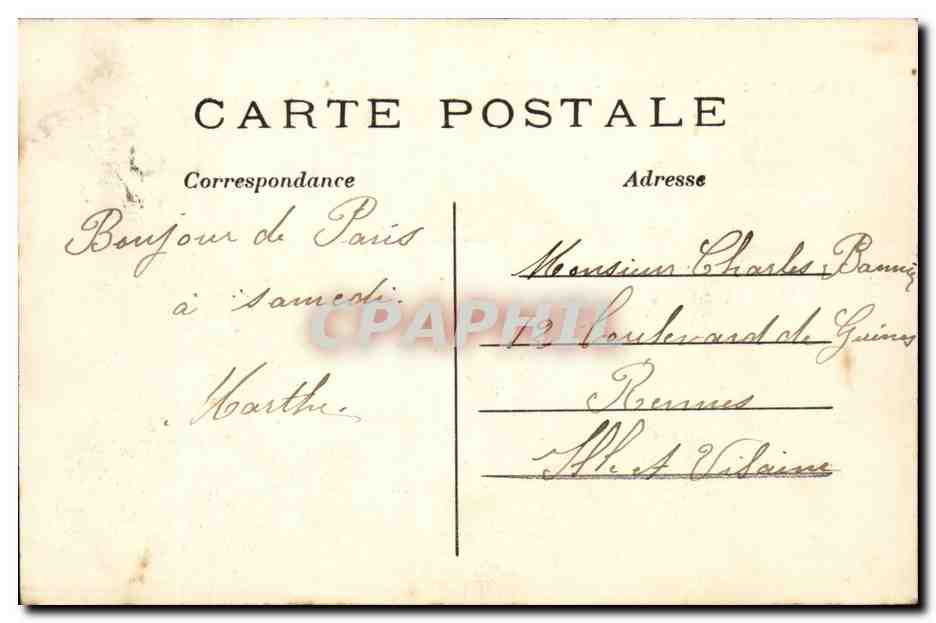 CARTE POSTALE
Correspondance
Adresse
Bonjour de Paris
à samedi.
Marthe.
Monsieur Charles
12 boulevard de
Rennes
Ille et Vilaine
CPAPHIL